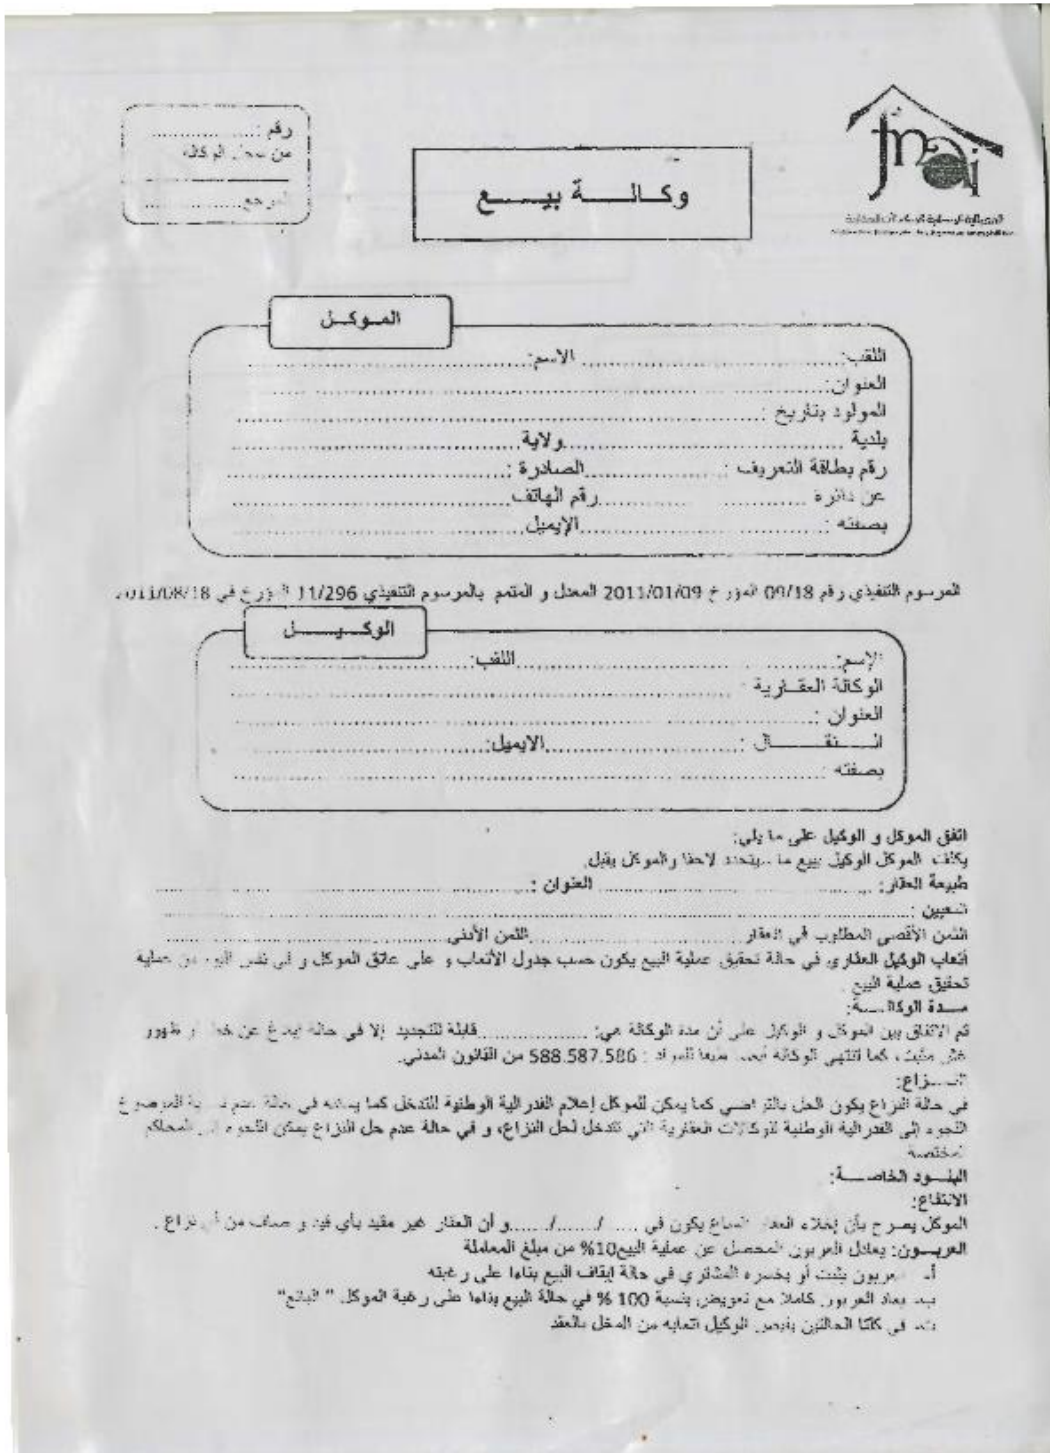 رقم :..................
من سجل الوكالة
المرجع..................
fnai
وكـالـــــة بيـــــع
المـوكـل
اللقب:..................الاسم:..................
العنوان:..................
المولود بتاريخ :..................
بلدية ..................ولاية..................
رقم بطاقة التعريف :..................الصادرة :..................
عن دائرة ..................رقم الهاتف..................
بصفته :..................الإيميل..................
المرسوم التنفيذي رقم 09/18 المؤرخ 2011/01/09 المعدل و المتمم بالمرسوم التنفيذي 11/296 المؤرخ في 2011/08/18
الوكـيـــل
الإسم:..................اللقب:..................
الوكالة العقـارية :..................
العنوان :..................
انـــــتقـــــال :..................الايميل:..................
بصفته :..................
اتفق الموكل و الوكيل على ما يلي:
يكلف الموكل الوكيل ببيع ما سيتحدد لاحقا والموكل يقبل.
طبيعة العقار:..................العنوان :..................
تعيين :..................
الثمن الأقصى المطلوب في العقار..................الثمن الأدنى..................
أتعاب الوكيل العقاري في حالة تحقيق عملية البيع يكون حسب جدول الأتعاب و على عاتق الموكل و في نفس اليوم من عملية
تحقيق عملية البيع .
مـــدة الوكالـــة:
تم الإتفاق بين الموكل و الوكيل على أن مدة الوكالة هي: ..................قابلة للتجديد إلا في حالة عن أو ظهور
غش مثبت ، كما تنتهي الوكالة للمواد : 588.587.586 من القانون المدني.
النـــزاع:
في حالة النزاع يكون الحل بالتراضي كما يمكن للموكل إعلام الفدرالية الوطنية للتدخل كما يمكنه في حالة عدم الموضوع
اللجوء إلى الفدرالية الوطنية للوكالات العقارية التي تتدخل لحل النزاع، و في حالة عدم حل النزاع يمكن اللجوء إلى المحاكم
المختصة
البنـــود الخاصـــة:
الانتفاع:
الموكل يصرح بأن إخلاء العقار المباع يكون في ...../......./.......و أن العقار غير مقيد بأي قيد و صاف من أي نزاع .
العربـــون: يعادل العربون المحصل عن عملية البيع10% من مبلغ المعاملة
أ- العربون يثبت أو يخسره المشتري في حالة إيقاف البيع بناءا على رغبته
ب- يعاد العربون كاملا مع تعويض بنسبة 100 % في حالة البيع بناءا على رغبة الموكل " البائع"
ت- في كلتا الحالتين يقبض الوكيل أتعابه من المخل بالعقد